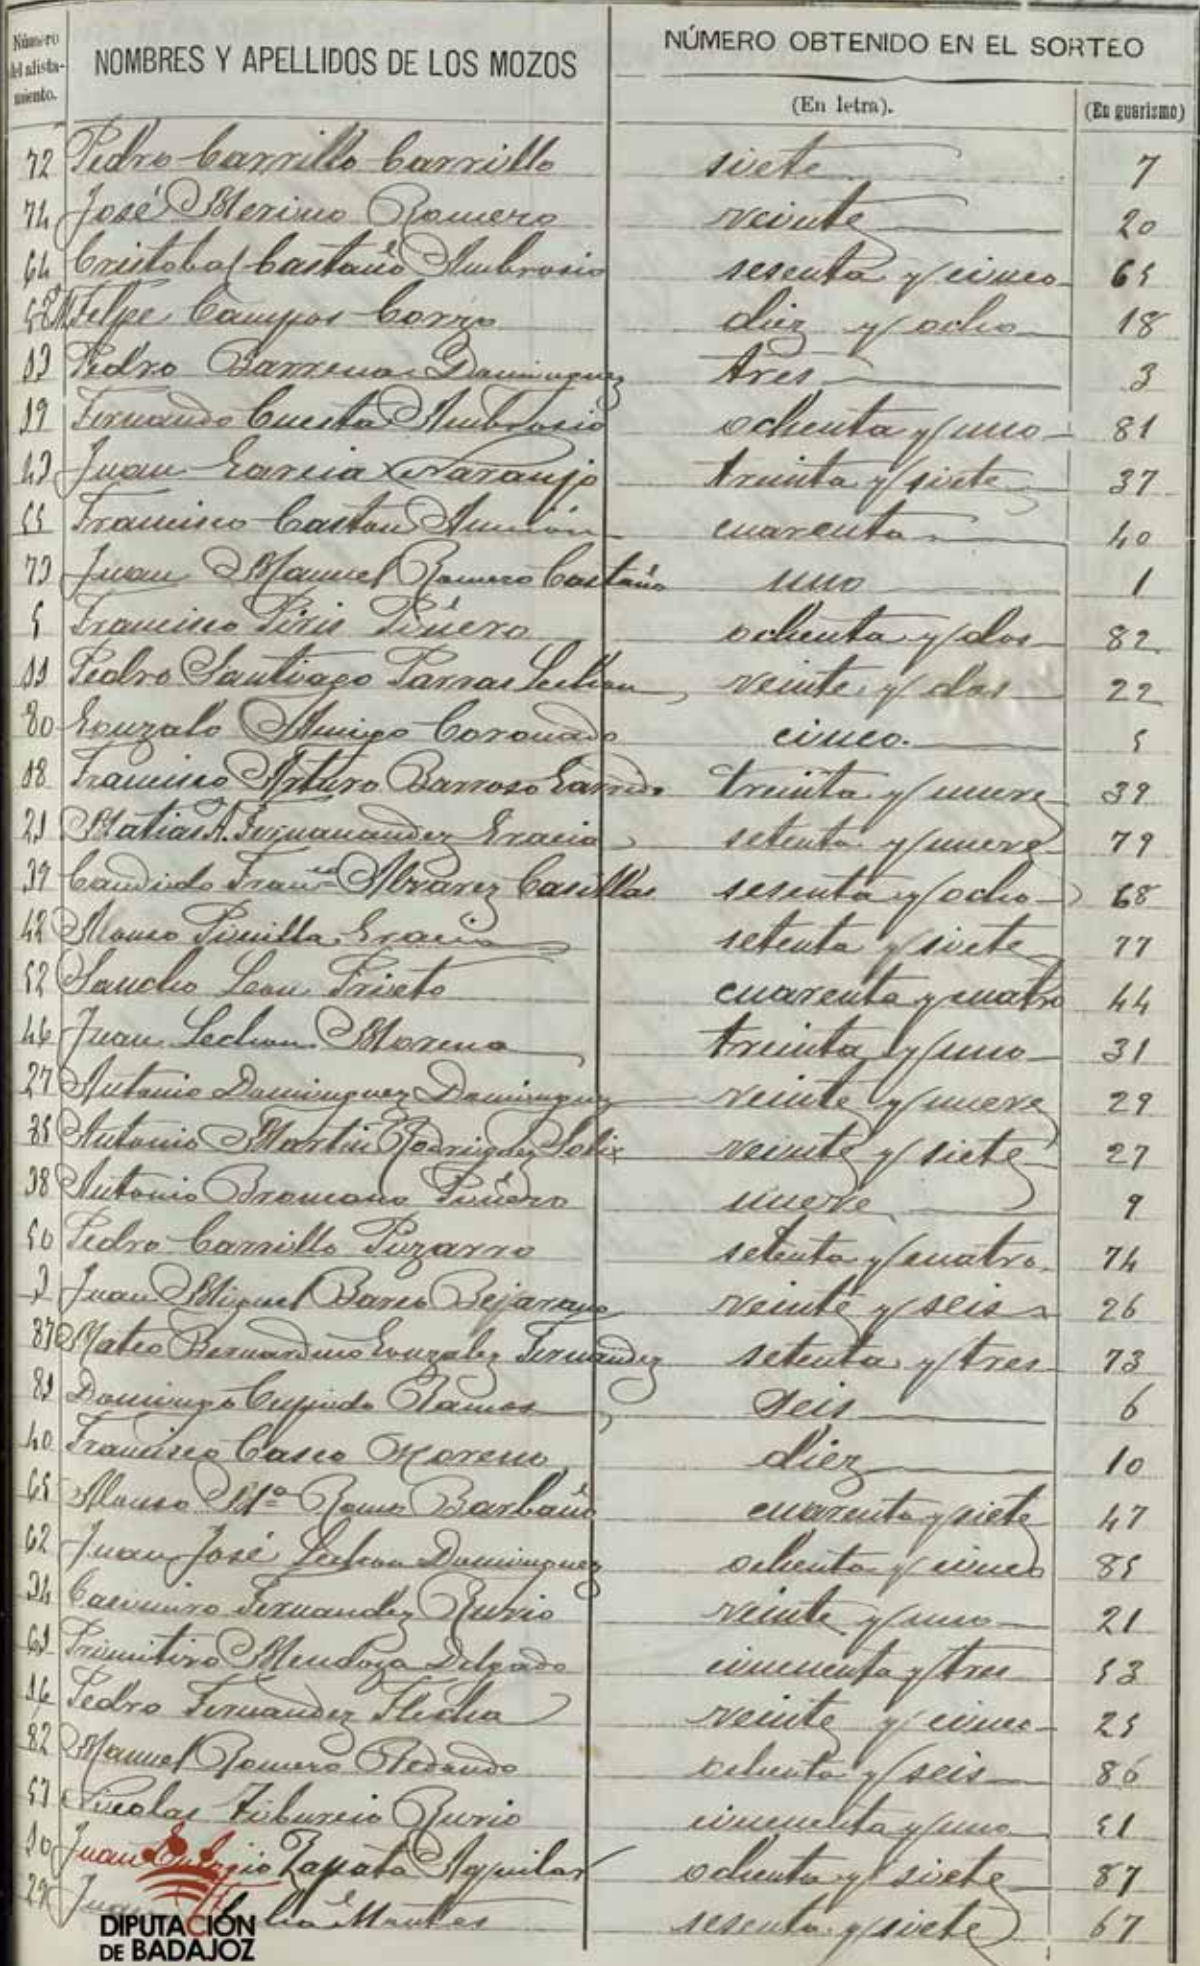 Número del alistamiento. NOMBRES Y APELLIDOS DE LOS MOZOS NÚMERO OBTENIDO EN EL SORTEO
(En letra). (En guarismo)
72 Pedro Carrillo Carrillo siete 7
74 José Merino Romero veinte 20
64 Cristobal Castaño Ambrosio sesenta y cinco 65
Felpe Campos Corzo diez y ocho 18
13 Pedro Barrena Dominguez tres 3
19 Fernando Cuesta Ambrosio ochenta y uno 81
43 Juan Garcia Naranjo treinta y siete 37
55 Francisco Castan cuarenta 40
73 Juan Manuel Romero Castaño uno 1
5 Francisco Piris Piñero ochenta y dos 82
11 Pedro Santiago Parras Lechon veinte y dos 22
80 Gonzalo Amigo Coronado cinco 5
18 Francisco Arturo Barroso Garrido treinta y nueve 39
21 Matias A. Fernanandez Gracia setenta y nueve 79
39 Candido Franco Alvarez Casillas sesenta y ocho 68
42 Alonso Pinilla Gracia setenta y siete 77
52 Sancho Leon Prieto cuarenta y cuatro 44
46 Juan Lechon Moreno treinta y uno 31
27 Antonio Dominguez Dominguez veinte y nueve 29
85 Antonio Martin Rodriguez Solis veinte y siete 27
38 Antonio Bromano Piñero nueve 9
50 Pedro Carrillo Pizarro setenta y cuatro 74
Juan Miguel Barco Bejarano veinte y seis 26
87 Mateo Bernardino Gonzalez Fernandez setenta y tres 73
81 Domingo Cupido Ramos Seis 6
40 Francisco Casco Moreno diez 10
65 Alonso Mª Romo Barbaño cuarenta y siete 47
62 Juan José Lechon Dominguez ochenta y cinco 85
34 Casimiro Fernandez Ruvio veinte y uno 21
61 Primitivo Mendoza Delgado cincuenta y tres 53
16 Pedro Fernandez Flecha veinte y cinco 25
82 Manuel Romero Redondo ochenta y seis 86
51 Nicolas Tiburcio Ruvio cincuenta y uno 51
10 Juan Zapata Aguilar ochenta y siete 87
Juan Montes sesenta y siete 67
DIPUTACIÓN
DE BADAJOZ